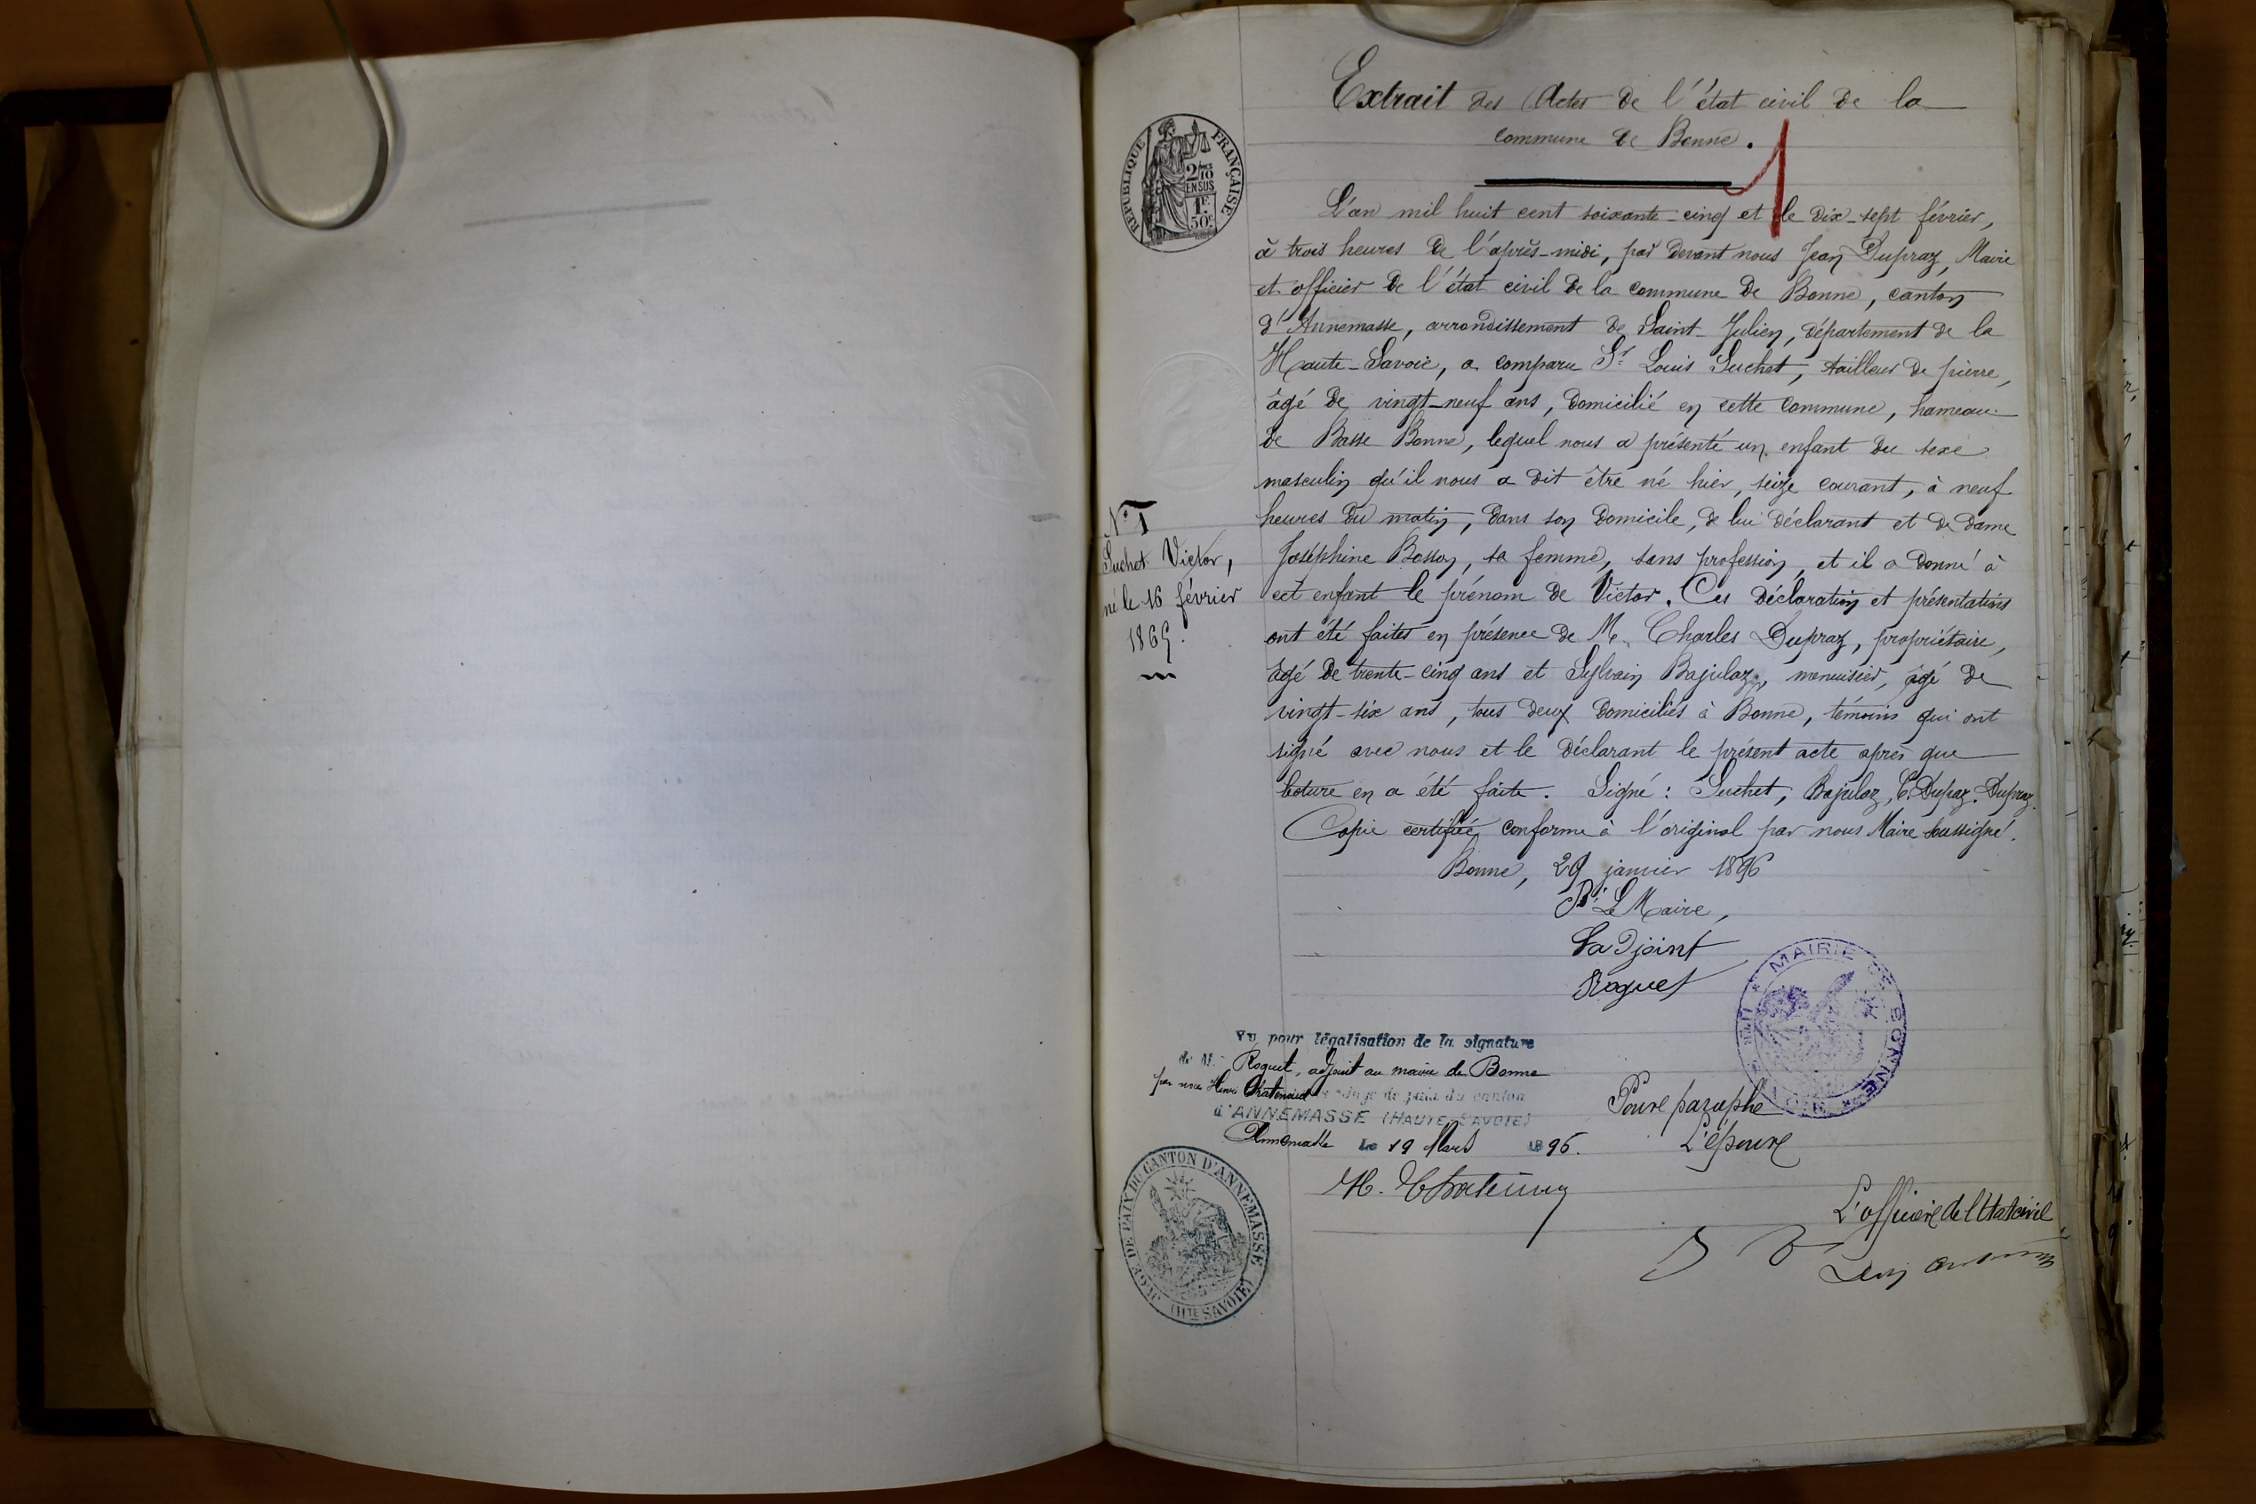 Extrait des Actes de l'état civil de la
commune de Bonne.
1
REPUBLIQUE FRANÇAISE
2/10
EN SUS
1F
50c
L'an mil huit cent soixante-cinq et le dix-sept février,
à trois heures de l'après-midi, par devant nous Jean Dupraz, Maire
et officier de l'état civil de la commune de Bonne, canton
d'Annemasse, arrondissement de Saint-Julien, département de la
Haute-Savoie, a comparu Sr Louis Suchet, tailleur de pierre,
âgé de vingt-neuf ans, domicilié en cette commune, hameau
de Basse Bonne, lequel nous a présenté un enfant du sexe
masculin qu'il nous a dit être né hier, seize courant, à neuf
heures du matin, dans son domicile, de lui déclarant et de dame
Joséphine Bosson, sa femme, sans profession, et il a donné à
cet enfant le prénom de Victor. Ces déclaration et présentations
ont été faites en présence de M. Charles Dupraz, propriétaire,
âgé de trente-cinq ans et Sylvain Bajulaz, menuisier, âgé de
vingt-six ans, tous deux domiciliés à Bonne, témoins qui ont
signé avec nous et le déclarant le présent acte après que
lecture en a été faite. Signé : Suchet, Bajulaz, C. Dupraz. Dupraz.
Copie certifiée conforme à l'original par nous Maire soussigné.
Bonne, 29 janvier 1896
Pr Le Maire,
L'adjoint
Roguet
N° 1
Suchet Victor,
né le 16 février
1865.
MAIRIE DE BONNE
Vu pour légalisation de la signature
de M. Roguet, adjoint au maire de Bonne
par nous Henri Chatenoud juge de paix du canton
d'ANNEMASSE (HAUTE-SAVOIE)
Annemasse Le 19 Mars 1896.
JUGE DE PAIX DU CANTON D'ANNEMASSE (HTE SAVOIE)
Pour paraphe
L'épouse
L'officier de l'état civil